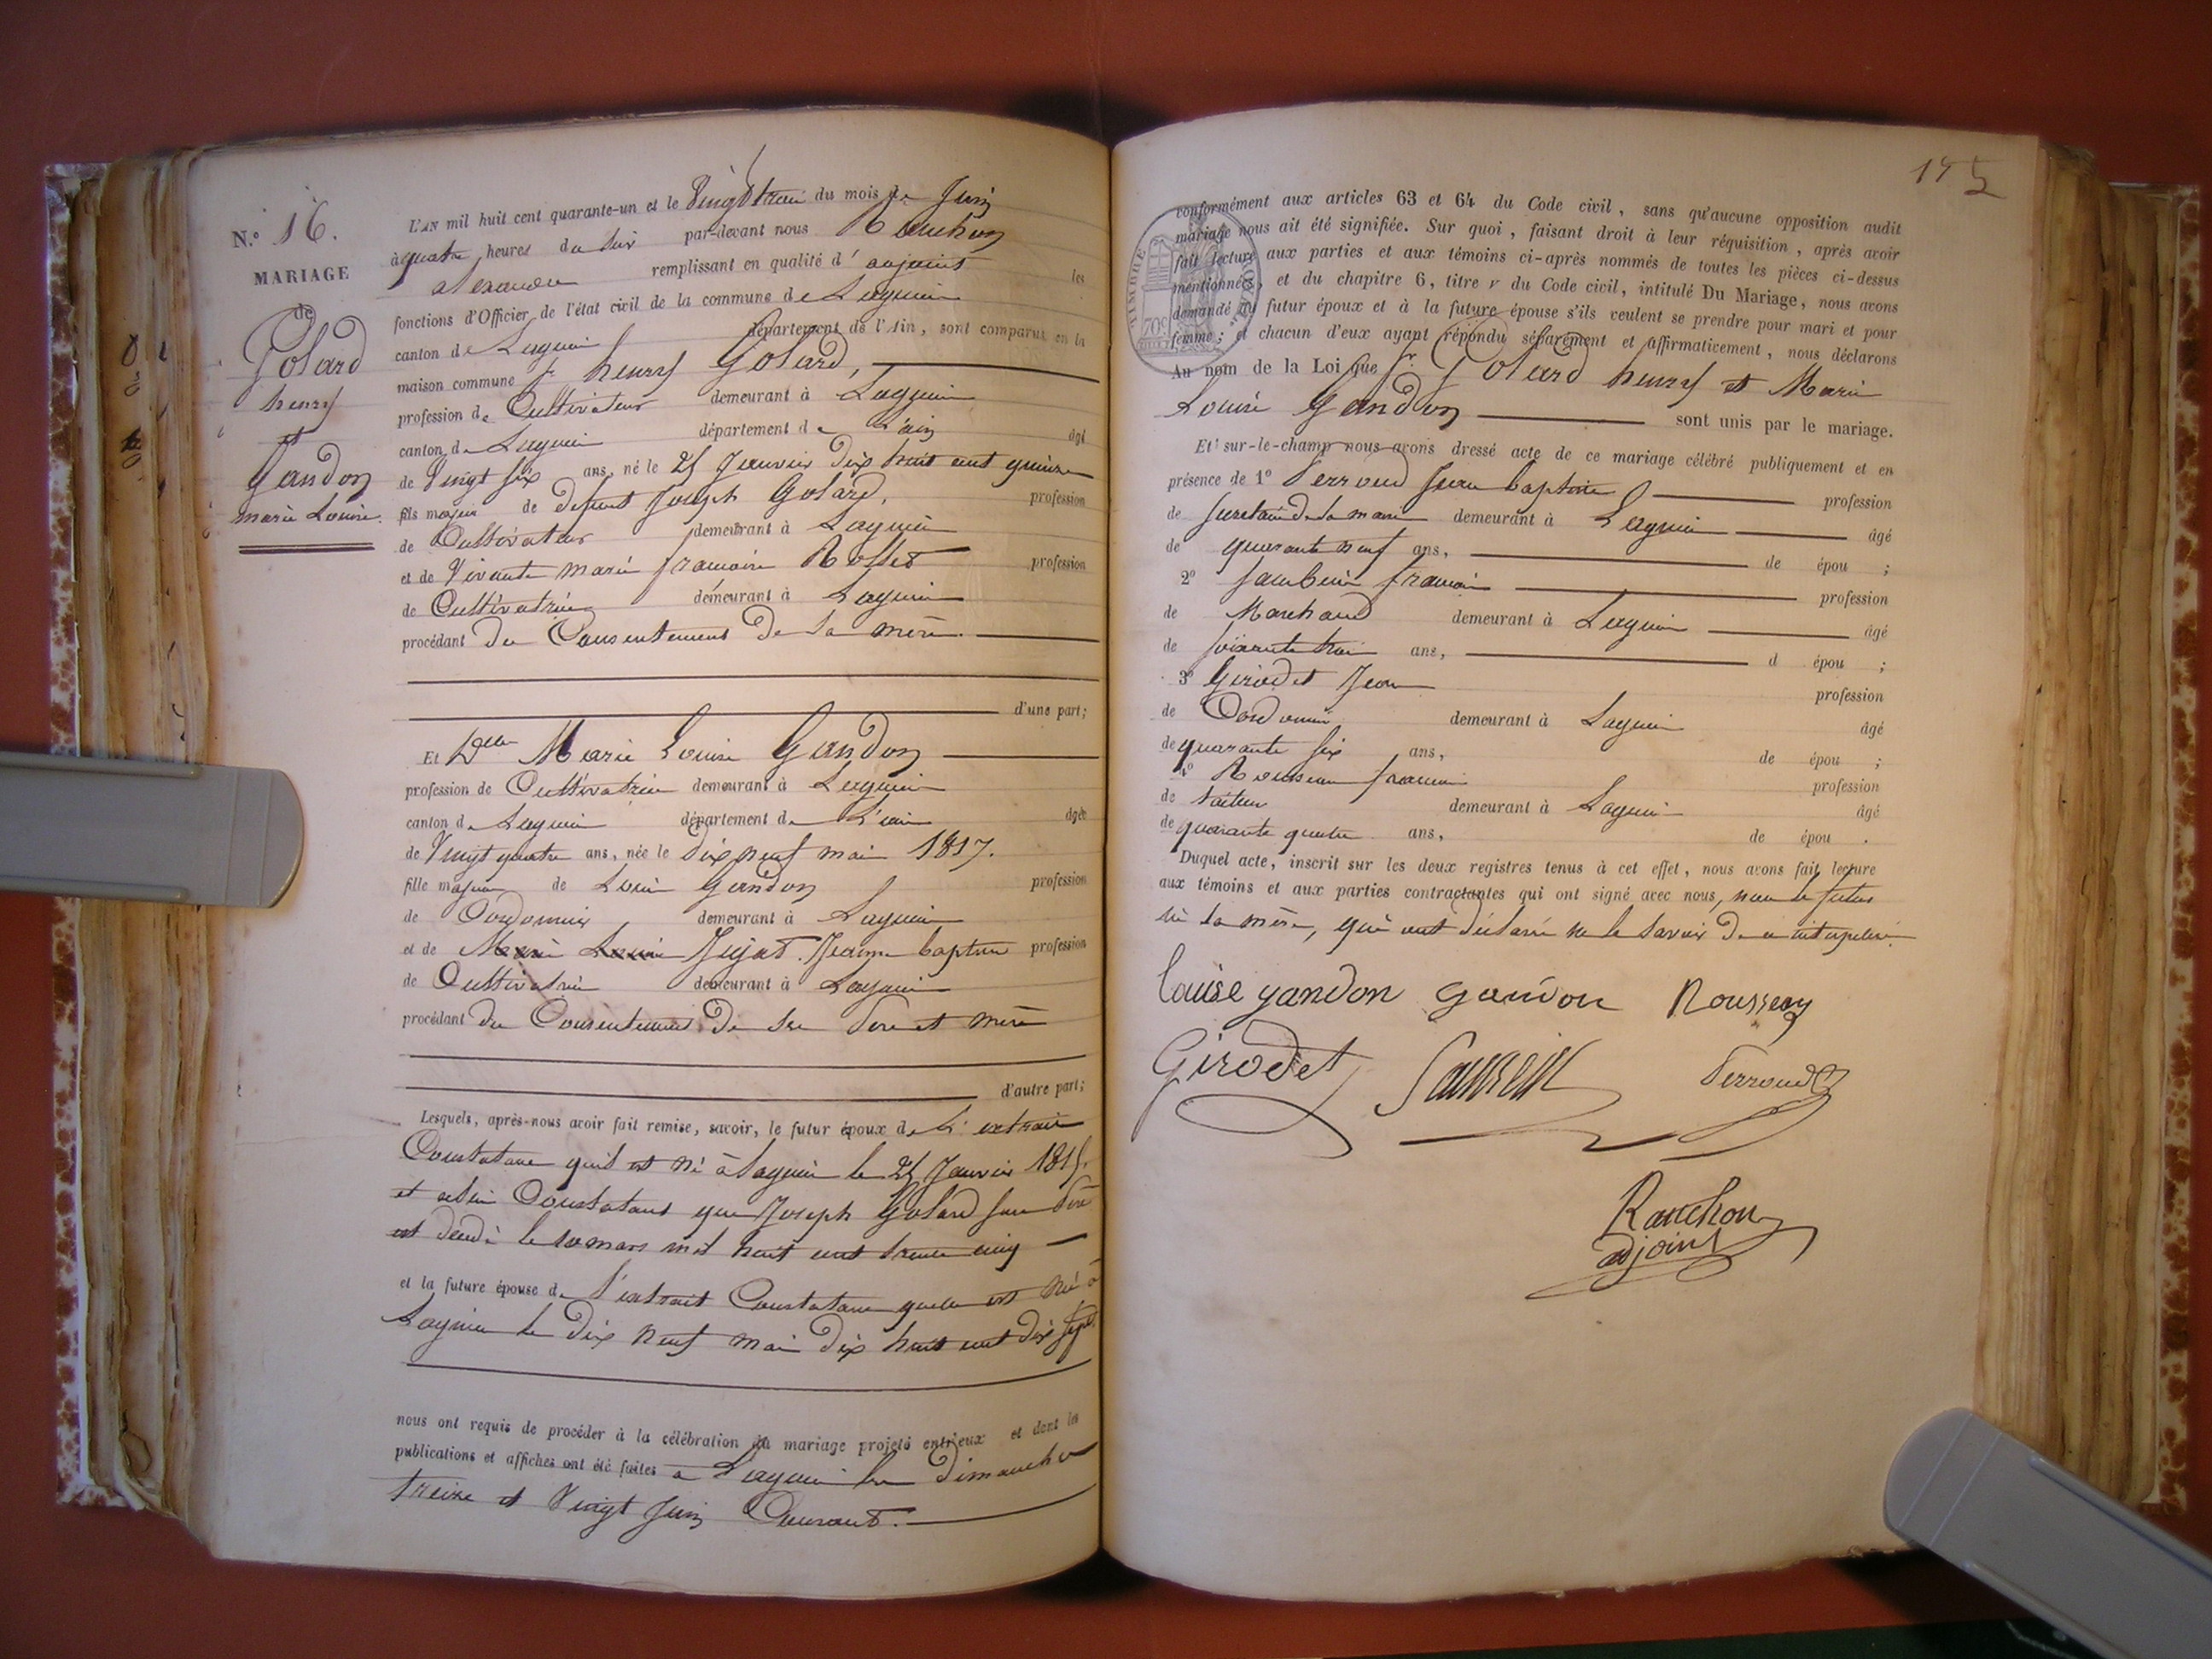 N.º 16.
MARIAGE
de
Golard
henry
et
Gandon
marie Louise.
L'AN mil huit cent quarante-un et le Vingt trois du mois de Juin
à quatre heures du soir par-devant nous Rauchon
alexandre remplissant en qualité d'adjoint les
fonctions d'Officier de l'état civil de la commune de Lagnieu
canton de Lagnieu département de l'Ain, sont comparus en la
maison commune Sr henry Golard,
profession de Cultivateur demeurant à Lagnieu
canton de Lagnieu département de L'ain âgé
de Vingt six ans, né le 25 Janvier dix huit cent quinze
fils majeur de defunt Joseph Golard, profession
de Cultivateur demeurant à Lagnieu
et de Vivante marie francoise Rosset profession
de Cultivatrice demeurant à Lagnieu
procédant du Consentement de Sa mère.
d'une part;
Et Dlle Marie Louise Gandon
profession de Cultivatrice demeurant à Lagnieu
canton de Lagnieu département de L'ain âgée
de Vingt quatre ans, née le dix neuf mai 1817.
fille majeure de Louis Gandon profession
de Cordonnier demeurant à Lagnieu
et de Marie Louise Jujat. Jeanne baptiste profession
de Cultivatrice demeurant à Lagnieu
procédant du Consentement de Ses Père et mère
d'autre part;
Lesquels, après-nous avoir fait remise, savoir, le futur époux de L'extrait
Constatant quil est né à Lagnieu le 25 Janvier 1815.
et celui Constatant que Joseph Golard son Père
est décédé le 10 mars mil huit cent trente cinq
et la future épouse de l'extrait Constatant quelle est née à
Lagnieu le dix neuf mai dix huit cent dix sept.
nous ont requis de procéder à la célébration du mariage projeté entr'eux et dont les
publications et affiches ont été faites à Lagnieu les dimanche
treize et Vingt Juin Courant.
145
conformément aux articles 63 et 64 du Code civil, sans qu'aucune opposition audit
mariage nous ait été signifiée. Sur quoi, faisant droit à leur réquisition, après avoir
fait lecture aux parties et aux témoins ci-après nommés de toutes les pièces ci-dessus
mentionnées, et du chapitre 6, titre v du Code civil, intitulé Du Mariage, nous avons
demandé au futur époux et à la future épouse s'ils veulent se prendre pour mari et pour
femme; et chacun d'eux ayant répondu séparément et affirmativement, nous déclarons
Au nom de la Loi que Sr Golard henry et Marie
Louise Gandon sont unis par le mariage.
Et sur-le-champ nous avons dressé acte de ce mariage célébré publiquement et en
présence de 1º Perroud Jean baptiste profession
de secretaire de la mairie demeurant à Lagnieu âgé
de quarante neuf ans, de épou ;
2º Saunsein francois profession
de Marchand demeurant à Lagnieu âgé
de soixante trois ans, d épou ;
3º Girodet Jean profession
de Cordonnier demeurant à Lagnieu âgé
de quarante six ans, de épou ;
4º Rousseau francois profession
de tailleur demeurant à Lagnieu âgé
de quarante quatre ans, de épou .
Duquel acte, inscrit sur les deux registres tenus à cet effet, nous avons fait lecture
aux témoins et aux parties contractantes qui ont signé avec nous, non le futur
ni sa mère, qui ont déclaré ne le savoir de ce interpellé.
louise gandon gandon Rousseau
Girodet Perroud
Rauchon
adjoint
TIMBRE
70c